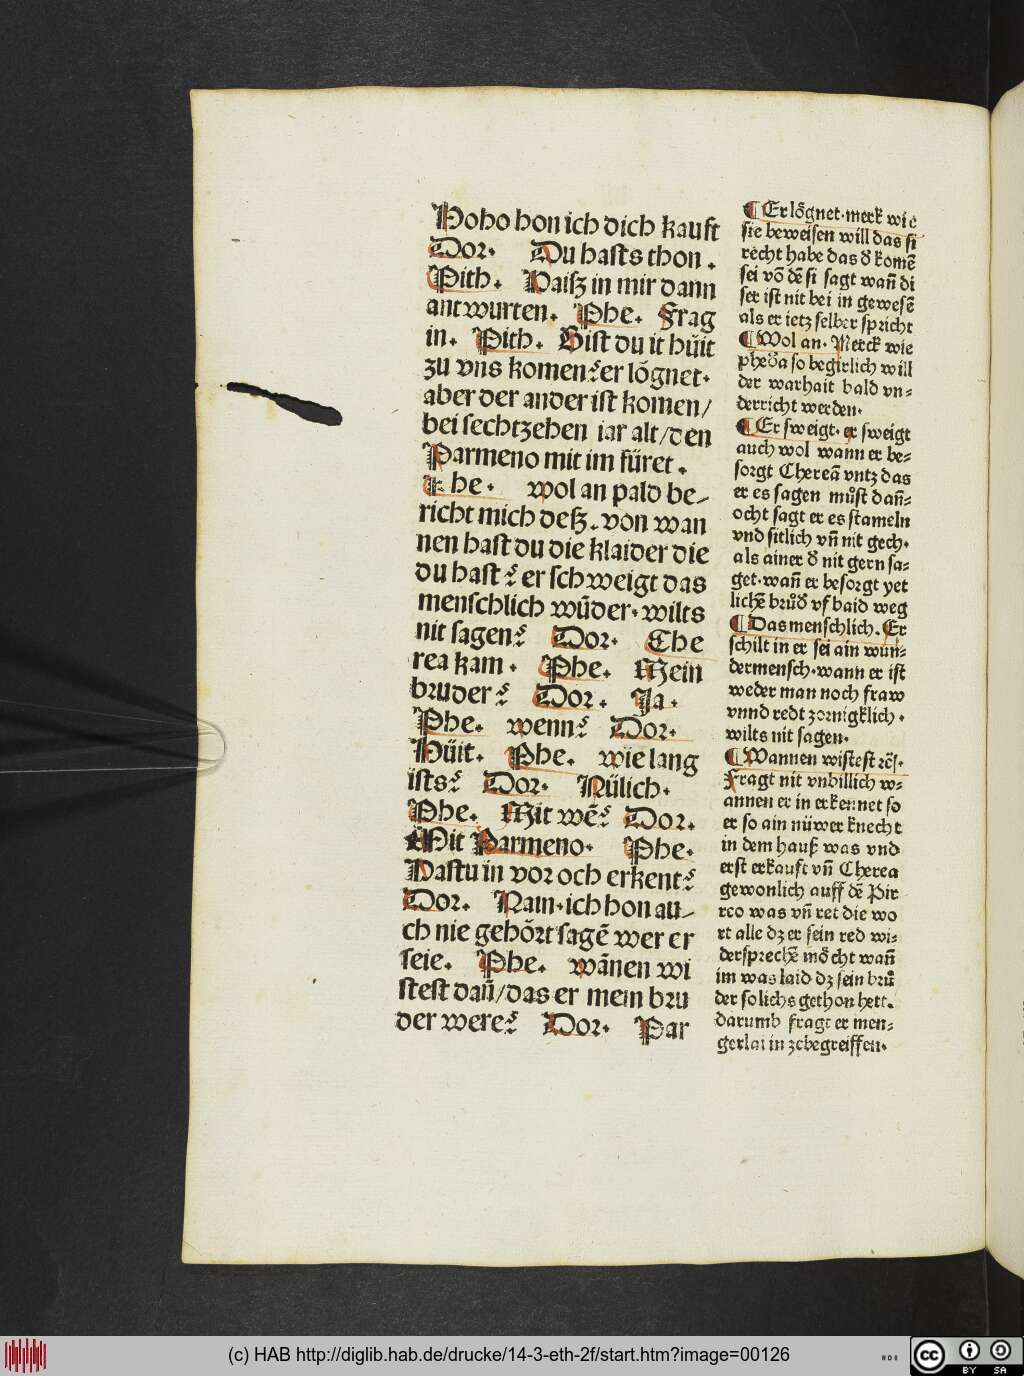 Hoho hon ich dich kauft
Dor. Du hasts thon.
Pith. Haisz in mir dann
antwurten. Phe. Frag
in. Pith. Bist du it hüit
zu vns komen? er lögnet.
aber der ander ist komen/
bei sechtzehen iar alt/den
Parmeno mit im füret.
Phe. wol an pald be-
richt mich desz. von wan
nen hast du die klaider die
du hast? er schweigt das
menschlich wūder. wilts
nit sagen? Dor. Che
rea kam. Phe. Mein
bruder? Dor. Ja.
Phe. wenn? Dor.
Hüit. Phe. wie lang
ists? Dor. Nülich.
Phe. Mit wē? Dor.
Mit Parmeno. Phe.
Hastu in vor och erkent?
Dor. Nain. ich hon au-
ch nie gehört sagē wer er
seie. Phe. wānen wi
stest dañ/das er mein bru
der were? Dor. Par
¶ Er lögnet. merk wie
sie beweisen will das si
recht habe das d̄ komē
sei võ dē si sagt wañ di
ser ist nit bei in gewesē
als er ietz selber spricht
¶ Wol an. Merck wie
phedr̄a so begirlich will
der warhait bald vn-
derricht werden.
¶ Er sweigt. er sweigt
auch wol wann er be-
sorgt Chereā vntz das
er es sagen můst dañ-
ocht sagt er es stameln
vnd sitlich vñ nit gech.
als ainer d̄ nit gern sa-
get. wañ er besorgt yet
lichē brůd̄ vf baid weg
¶ Das menschlich. Er
schilt in er sei ain wun-
dermensch. wann er ist
weder man noch fraw
vnnd redt zornigklich.
wilts nit sagen.
¶ Wannen wistest rēs.
Fragt nit vnbillich w-
annen er in erkennet so
er so ain nüwer knecht
in dem hauß was vnd
erst erkauft vñ Cherea
gewonlich auff dē Pir
reo was vñ ret die wo
rt alle dz er sein red wi-
dersprechē möcht wañ
im was laid dz sein brů
der solichs gethon hett.
darumb fragt er men-
gerlai in zebegreiffen.
(c) HAB http://diglib.hab.de/drucke/14-3-eth-2f/start.htm?image=00126
cc BY SA